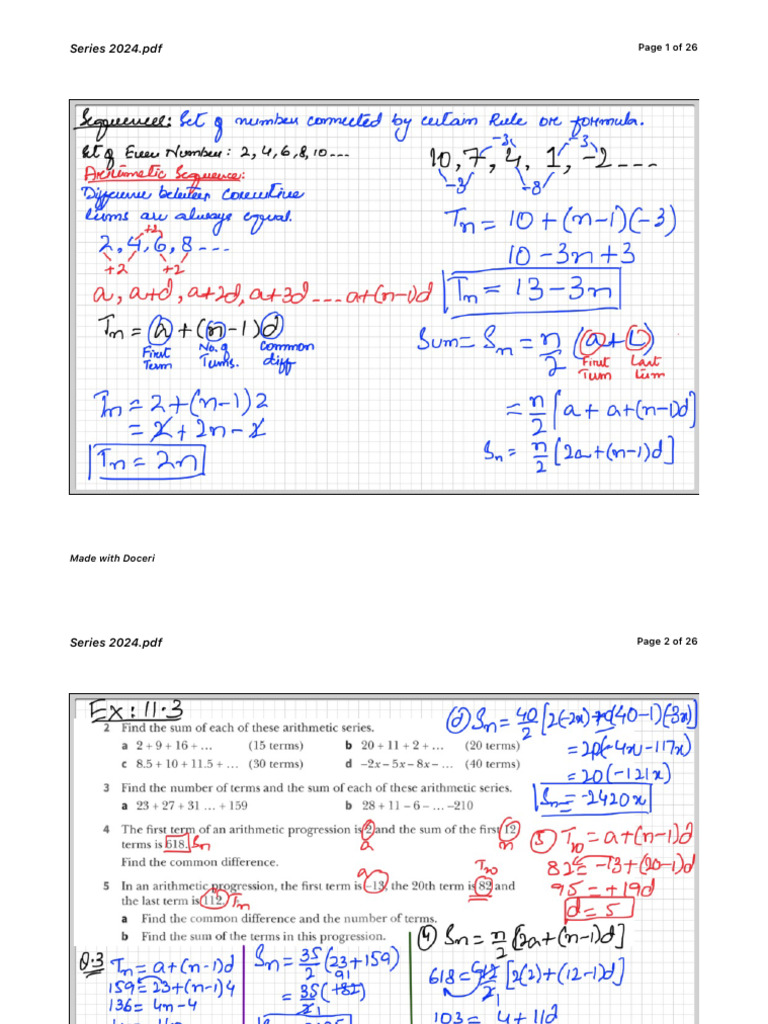 Series 2024.pdf
Page 1 of 26
Sequences: Set of number connected by certain Rule or formula.
Set of Even Number: 2, 4, 6, 8, 10 ...
Arithmetic Sequence:
Difference between consecutive
terms are always equal.
+2
2, 4, 6, 8 ...
+2 +2
a, a+d, a+2d, a+3d .... a+(n-1)d
Tn = a + (n-1)d
First Term
No. of Terms.
Common diff
Tn = 2+(n-1)2
= 2+2n-2
Tn = 2n
-3 -3
10, 7, 4, 1, -2 ....
-3 -8
Tn = 10+(n-1)(-3)
10-3n+3
Tn = 13-3n
Sum = Sn = n/2 (a+L)
First Term
Last term
= n/2 [a+a+(n-1)d]
Sn = n/2 [2a+(n-1)d]
Made with Doceri
Series 2024.pdf
Page 2 of 26
Ex: 11.3
2 Find the sum of each of these arithmetic series.
a 2 + 9 + 16 + … (15 terms) b 20 + 11 + 2 + … (20 terms)
c 8.5 + 10 + 11.5 + … (30 terms) d −2x − 5x − 8x − … (40 terms)
3 Find the number of terms and the sum of each of these arithmetic series.
a 23 + 27 + 31 … + 159 b 28 + 11 − 6 − … −210
4 The first term of an arithmetic progression is 2 and the sum of the first 12
terms is 618. Sn a n
Find the common difference.
a T20
5 In an arithmetic progression, the first term is −13, the 20th term is 82 and
the last term is 112. Tn
a Find the common difference and the number of terms.
b Find the sum of the terms in this progression.
d) Sn = 40/2 [2(-2x)+(40-1)(-3x)]
= 20(-4x-117x)
= 20(-121x)
Sn = -2420x
5) T20 = a+(n-1)d
82 = -13+(20-1)d
95 = +19d
d = 5
Q.3 Tn = a+(n-1)d
159 = 23+(n-1)4
136 = 4n-4
Sn = 35/2 (23+159)
91
= 35/2 (+82)
4) Sn = n/2 [2a+(n-1)d]
618 = 12/2 [2(2)+(12-1)d]
103 = 4+11d